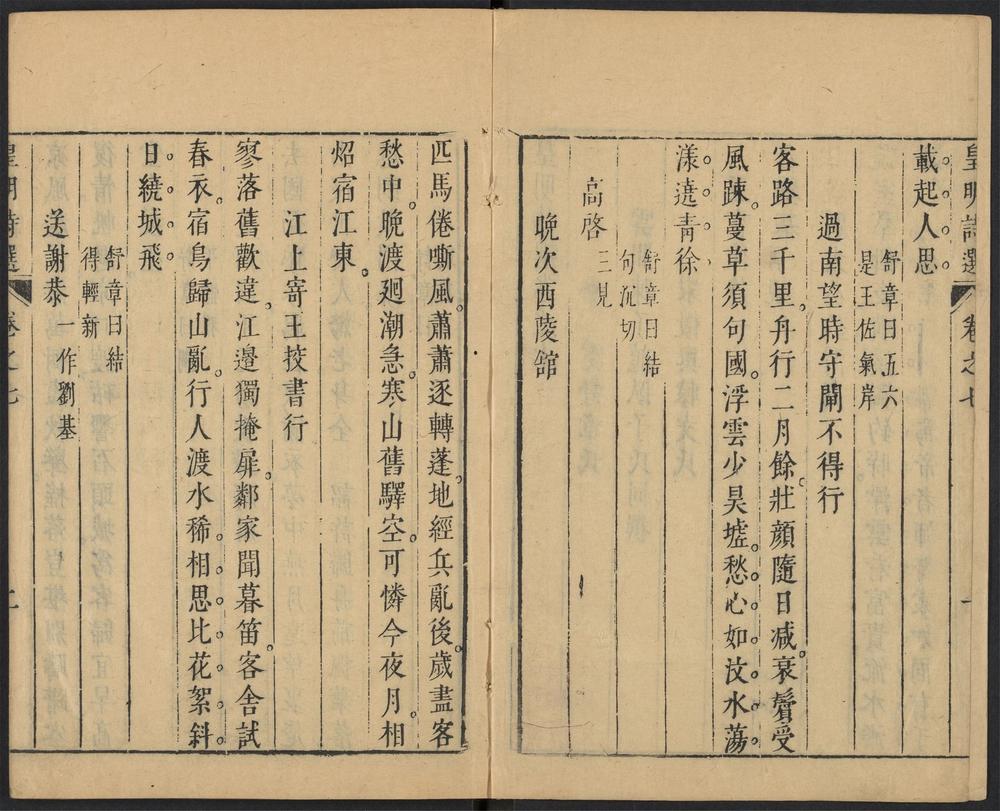 皇明詩選 卷之七 一
載起人思
舒章曰五六
是王佐氣岸
過南望時守閘不得行
客路三千里舟行二月餘壯顏隨日减衰鬢受
風踈蔓草須句國浮雲少昊墟愁心如汶水蕩
漾遶青徐
舒章曰結
句沉切
高啓
三見
晚次西陵舘
匹馬倦嘶風蕭蕭逐轉蓬地經兵亂後歲盡客
愁中晚渡廻潮急寒山舊驛空可憐今夜月相
炤宿江東
江上寄王挍書行
寥落舊歡違江邊獨掩扉鄰家聞暮笛客舍試
春衣宿鳥歸山亂行人渡水稀相思比花絮斜
日繞城飛
舒章曰結
得輕新
送謝恭
一作劉基
皇明詩選 卷之七